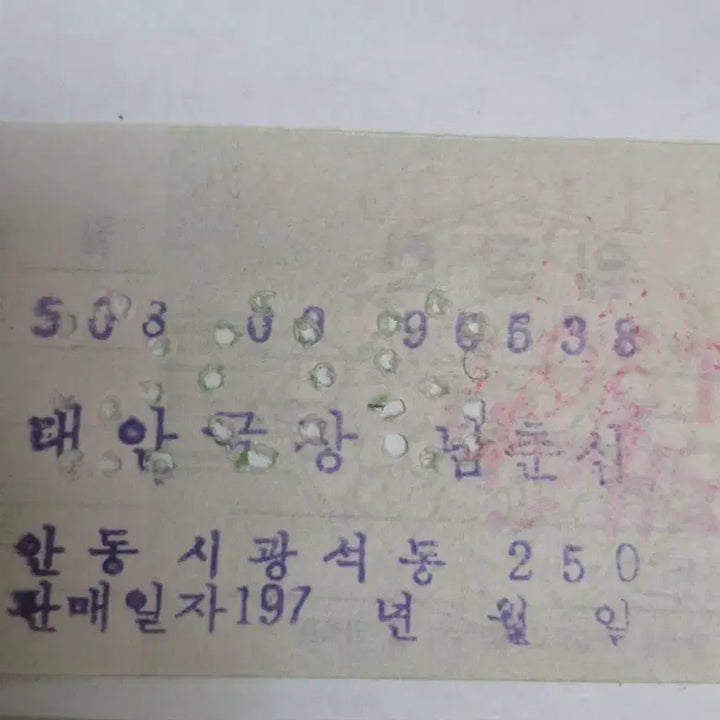 503 03 96538
태안극장 남춘신
안동시광석동 250
판매일자197 년 월 일